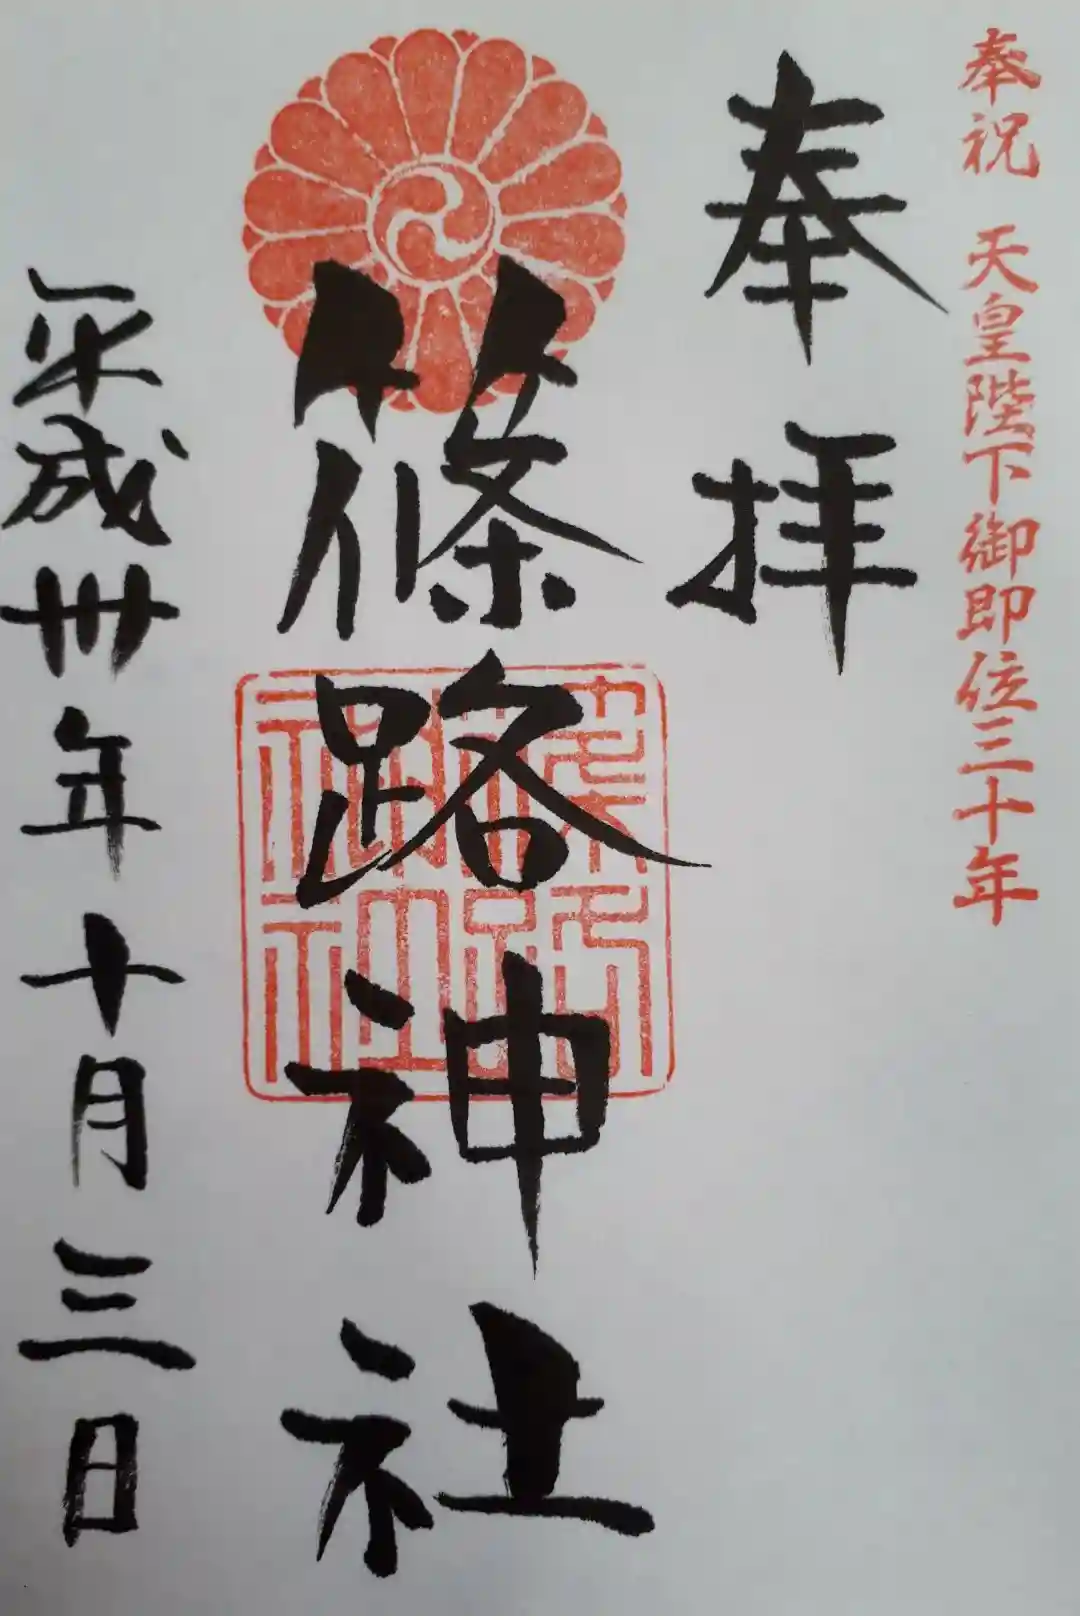 奉祝 天皇陛下御即位三十年
奉拝
篠路神社
平成卅年十月三日